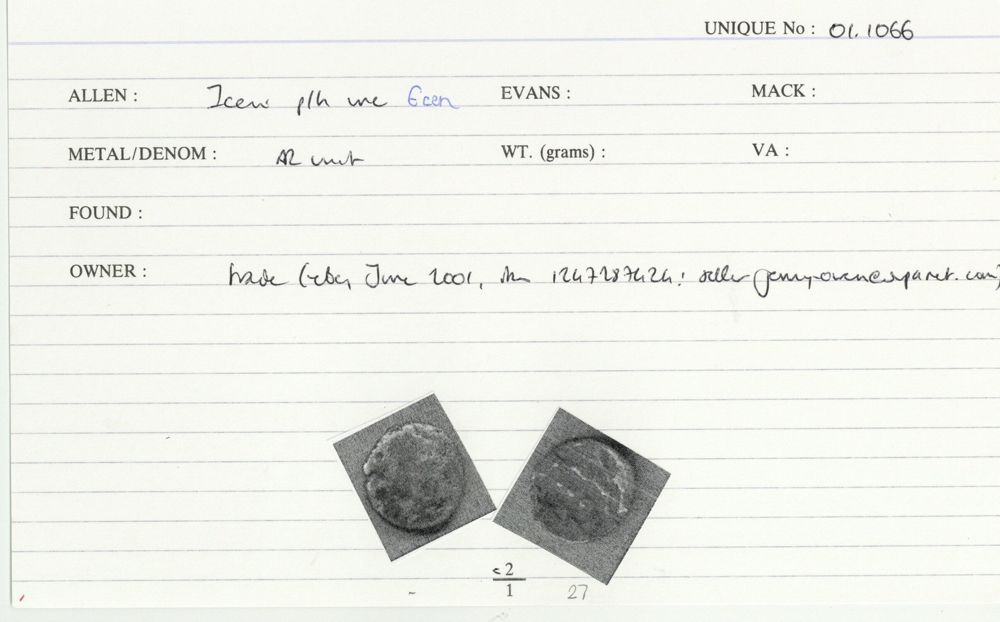 UNIQUE No : 01.1066
ALLEN : Iceni p/h unc Ecen EVANS : MACK :
METAL/DENOM : AR unit WT. (grams) : VA :
FOUND :
OWNER : trade (eBay June 2001, 1247287424: seller
<2
1
- 27